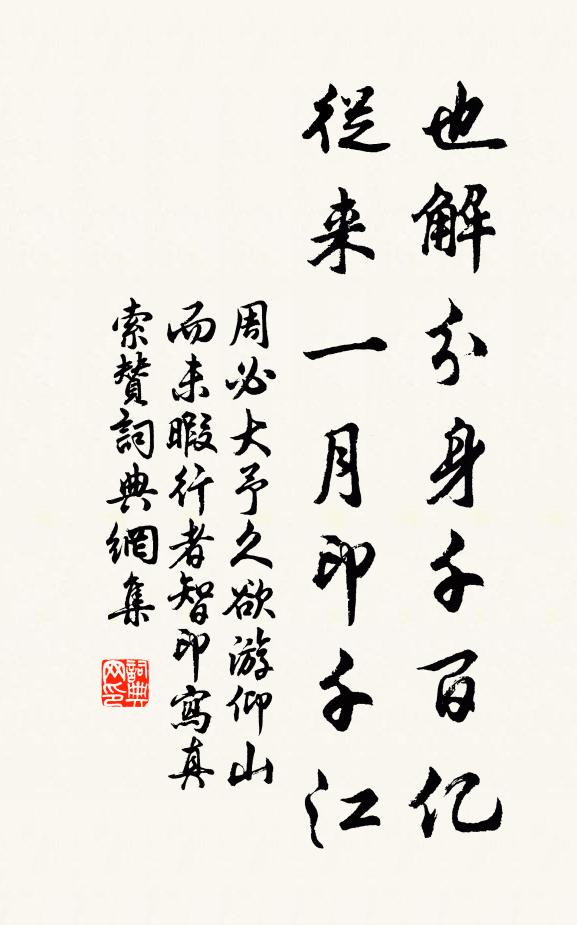 也解分身千百亿
從来一月印千江
周必大予久欲游仰山
而未暇行者智印寫真
索賛詞典網集
詞典网印